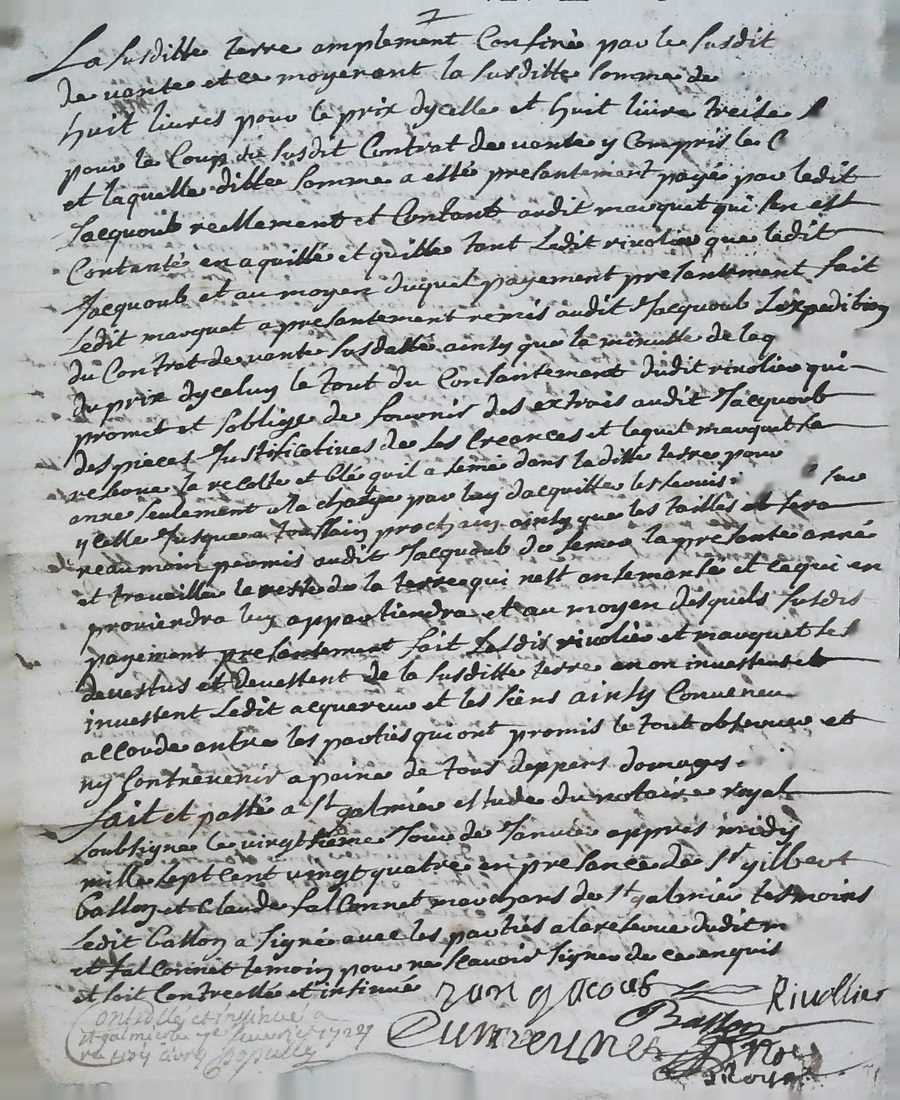 La susditte terre amplement Confiné par le susdit
de vante et ce moyenant la susditte somme de
huit livres pour le prix dycelle et huit livre treise
pour le Coup du susdit Contrat de vante y Compris le C
et laquelle ditte somme a esté presantement payé par ledit
Jacquoub reellement et Contant audit marquet qui sen est
Contanté en a quitté et quitte tant Ledit rivolier que ledit
Jacquoub et au moyen duquel payement presantement fait
Ledit marquet a presantement remis audit Jacquoub Lexpedition
du Contrat de vante susdatté ainsy que la minutte de laq
du prix dyceluy le tout du Consantement dudit rivolier qui
promet et soblige de fournir des extrais audit Jacquoub
des pieces Justificatives de ses Creances et lequel marquet se
reserve la recolte et blé quil a semé dans laditte terre pour
anne seulement a la charge par luy dacquitte les servis sur
ycelle Jusque a toussain prochain ainsy que les tailles et sera
neaumoin permis audit Jacquoub de semer la presante anné
et travaille le reste de la terre qui nest ansemansé et ce qui en
proviendra luy appartiendra et au moyen disquels susdis
payement presantement fait Lesdis rivolier et marquet se
devestus et devestent de la susditte terre en on investus et
investent Ledit acquereur et les siens ainsy Conveneu
accordé antre les parties qui ont promis le tout observer et
ny Contrevenir a paine de tous deppens domages.
fait et passé a St galmier estude du notaire royal
soubsigne le vingt sieme Jour de Janvier appres midy
mille sept cent vingt quatre en presance de Sr gilbert
Basson et Claude falconnet marchans de St galmier tesmoins
Ledit Basson a signé avec les parties a la reserve dudit m
et falconnet temoin pour ne scavoir signe de ce enquis
et soit Controllé et insinué
Rivollier
Basson
Controllé et insinué a
St galmier le 7e fevrier 1724